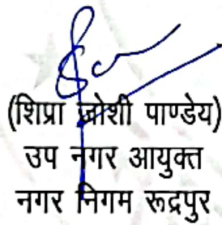 (शिप्रा जोशी पाण्डेय)
उप नगर आयुक्त
नगर निगम रूद्रपुर